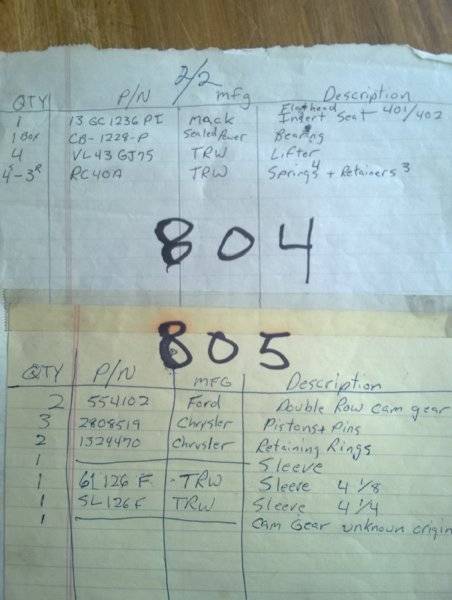 2/2
QTY P/N mfg Description
1 13 GC 1236 PI Mack Flathead Insert Seat 401/402
1 Box CB-1229-P Sealed Power Bearing
4 VL43 GJ75 TRW Lifter
4s-3R RC40A TRW Springs 4 + Retainers 3
804
805
QTY P/N MFG Description
2 554102 Ford Double Row cam gear
3 2808519 Chrysler Pistons + Pins
2 1324470 Chrysler Retaining Rings
1 Sleeve
1 61126 F - TRW Sleeve 4 1/8
1 SL126F TRW Sleeve 4 1/4
1 Cam Gear unknown origin